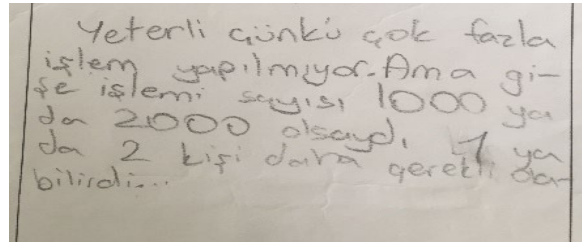 Yeterli çünkü çok fazla
işlem yapılmıyor. Ama gi-
şe işlemi sayısı 1000 ya
da 2000 olsaydı, 1 ya
da 2 kişi daha gerekli da-
bilirdi...